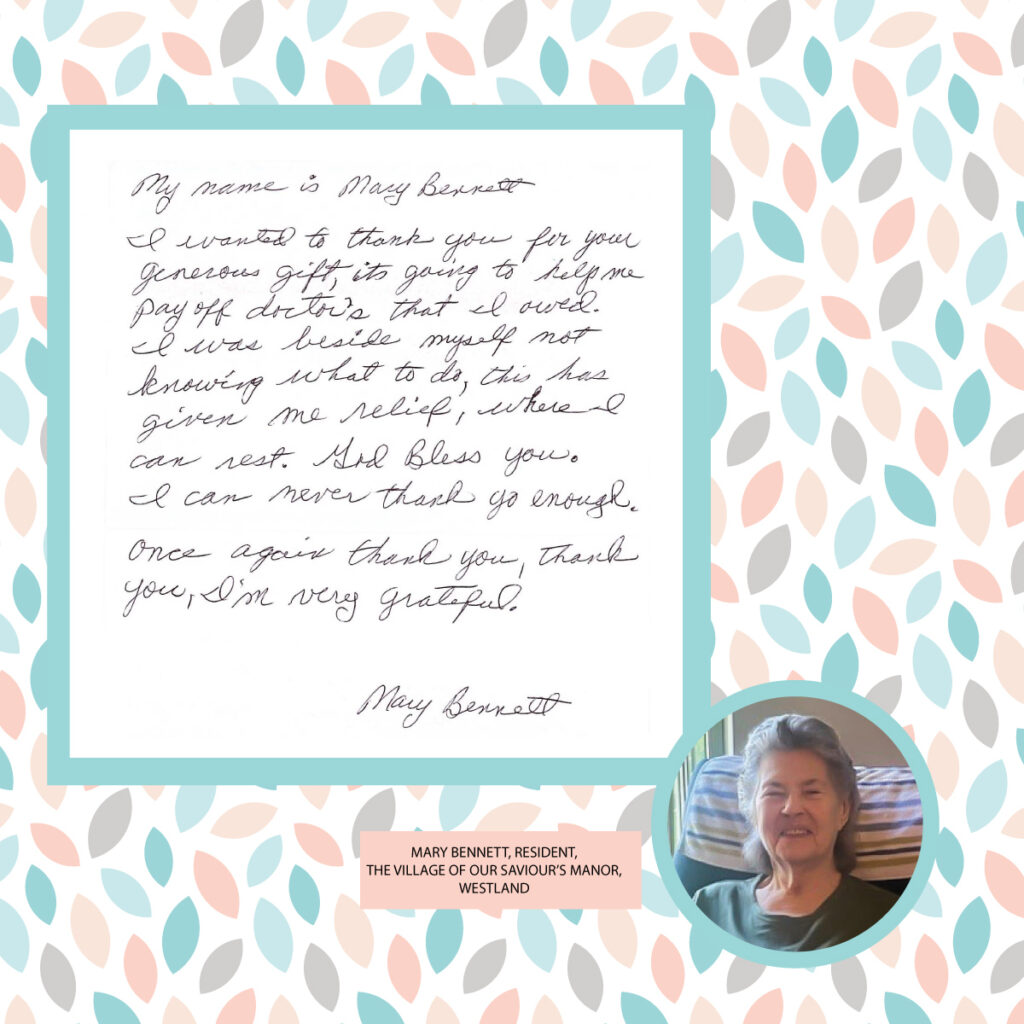 My name is Mary Bennett
I wanted to thank you for your
generous gift, its going to help me
pay off doctor's that I owed.
I was beside myself not
knowing what to do, this has
given me relief, where I
can rest. God Bless you.
I can never thank yo enough.
Once again thank you, thank
you, I'm very grateful.
Mary Bennett
MARY BENNETT, RESIDENT,
THE VILLAGE OF OUR SAVIOUR'S MANOR,
WESTLAND